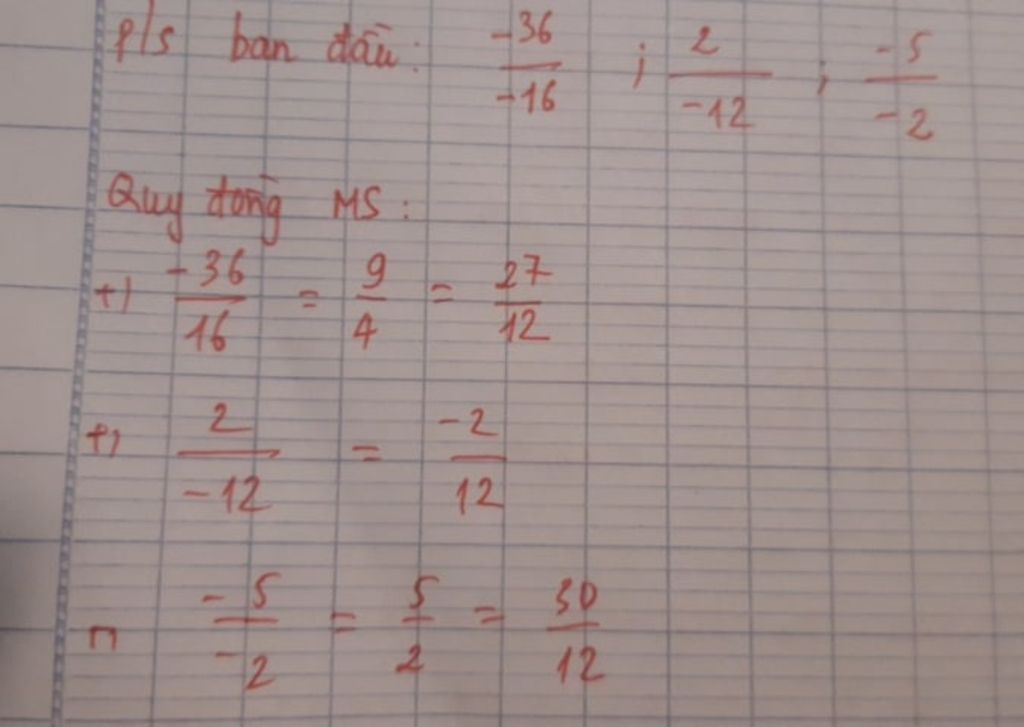 p/s ban đầu: -36/-16 ; 2/-12 ; -5/-2
Quy đồng MS:
+) -36/16 = 9/4 = 27/12
+) 2/-12 = -2/12
-5/-2 = 5/2 = 30/12